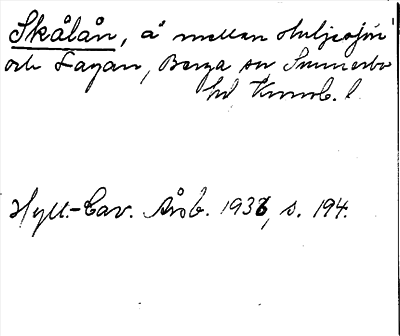 Skålån, å mellan Hvljesjön
och Lagan, Berga sn Sunnerbo
hd, Kronob. l.
Hylt.-Cav. Årsb. 1938, s. 194.